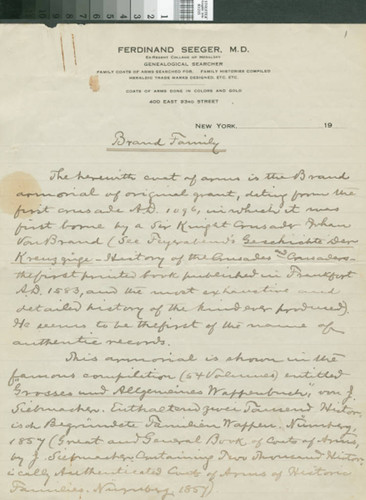 1
FERDINAND SEEGER, M.D.
EX-REGENT COLLEGE OF HERALDRY
GENEALOGICAL SEARCHER
FAMILY COATS OF ARMS SEARCHED FOR. FAMILY HISTORIES COMPILED
HERALDIC TRADE MARKS DESIGNED, ETC. ETC.
COATS OF ARMS DONE IN COLORS AND GOLD
400 EAST 93RD STREET
NEW YORK 19
Brand Family
The herewith coat of arms is the Brand
armorial of original grant, dating from the
first crusade A.D. 1096, in which it was
first borne by a Sir Knight Crusader Johan
Von Brand (See Geschichte Der
Kreuzzüge - History of the Crusades and Crusaders -
the first printed book published in Frankfort
A.D. 1583, and the most exhaustive and
detailed history of the kind ever produced).
He seems to be the first of the name of
authentic records.
This armorial is shown in the
famous compilation (64 Volumes) entitled
"Grosses und Allgemeines Wappenbuch", von J.
Siebmacher. Enthaltend zwoe Tausend Histor
isch Begründete Familien Wappen. Nürnberg,
1857 (Great and General Book of Coats of Arms,
by J. Siebmacher, Containing Two Thousand Histor
ically Authenticated Coats of Arms of Historic
Families. Nürnberg, 1857)